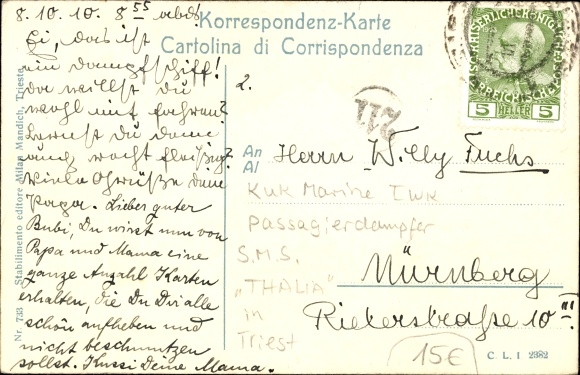 8.10.10. 8 55 abds!
Korrespondenz-Karte
Cartolina di Corrispondenza
Ei, das ist
ein Dampfschiff!
da willst du
wohl mit fahren?
Lernst du denn
auch recht fleißig?
Viele Grüße dein
Papa. Lieber guter
Bubi, Du wirst nun von
Papa und Mama eine
ganze Anzahl Karten
erhalten, die Du Dir alle
schön aufheben und
nicht beschmutzen
sollst. Kussi Deine Mama.
2.
211
5 5
HELLER
An
Al
Herrn Willy Fuchs
KuK Marine
Passagierdampfer
S.M.S.
„THALIA"
in
Triest
Nürnberg
Rieterstraße 10 III
15€
C. L. I 2382
Nr. 733 Stabilimento editore Milan Mandich, Trieste